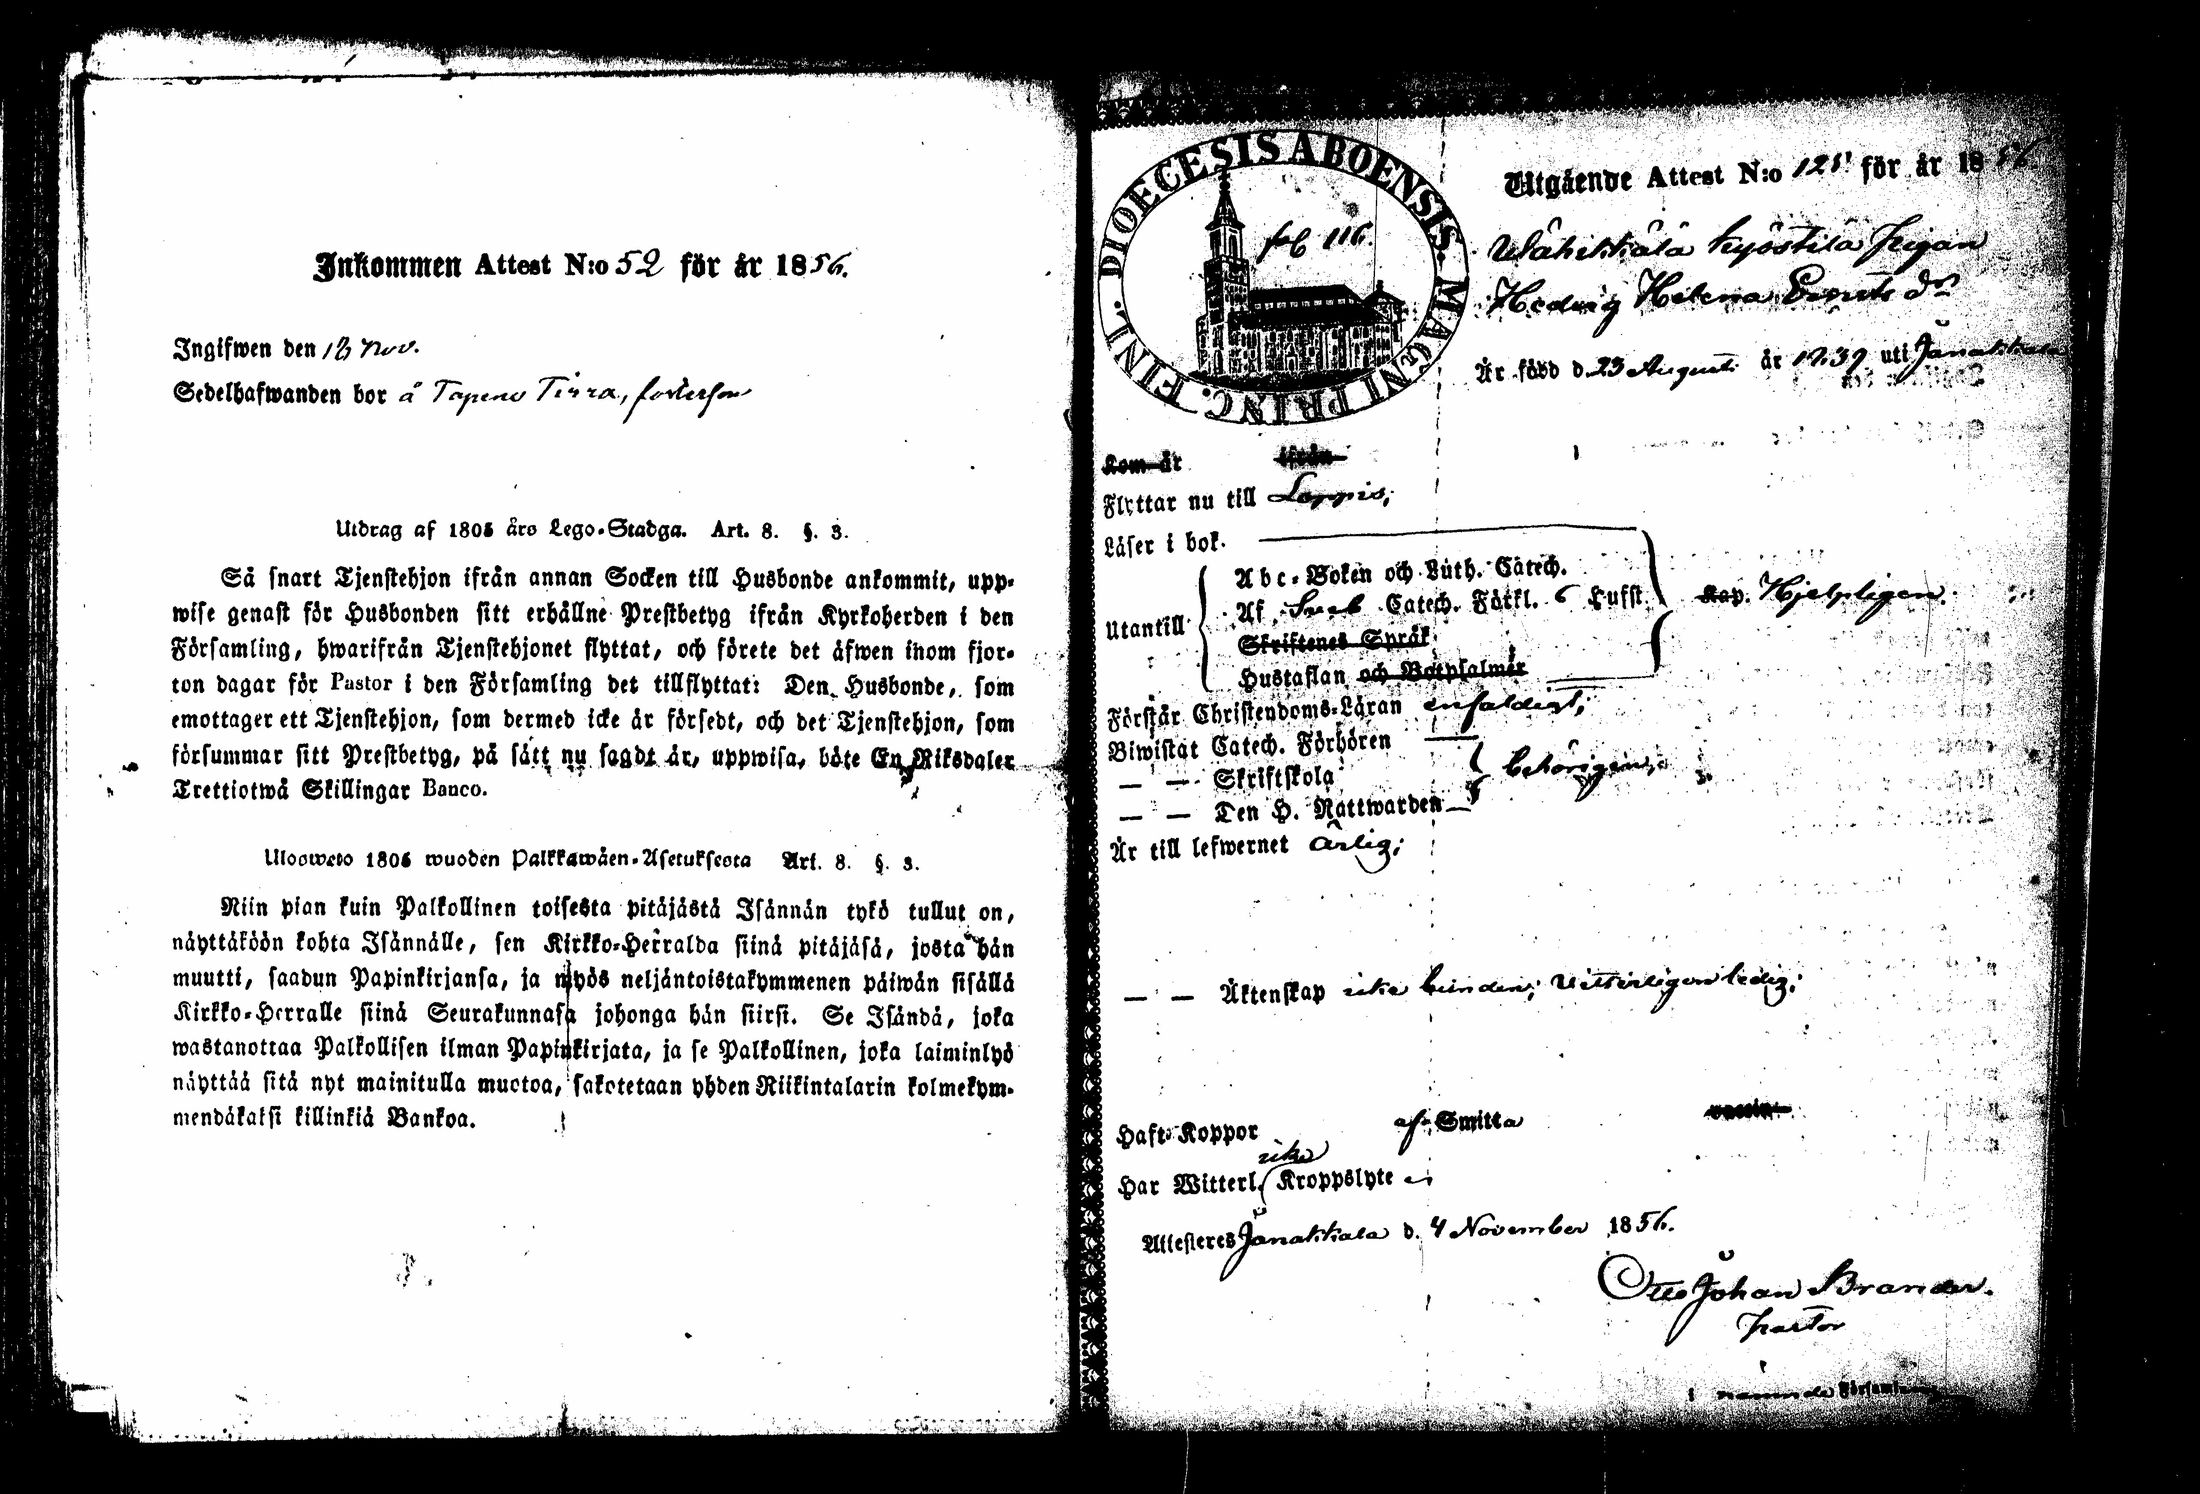 Inkommen Attest N:o 52 för år 1856.
Ingifwen den 13 Nov.
Sedelhafwanden bor å Tapeno Tirra,
Utdrag af 1805 års Lego-Stadga. Art. 8. §. 3.
Så snart Tjenstehjon ifrån annan Socken till Husbonde ankommit, upp-
wise genast för Husbonden sitt erhållne Prestbetyg ifrån Kyrkoherden i den
Församling, hwarifrån Tjenstehjonet flyttat, och förete det äfwen inom fjor-
ton dagar för Pastor i den Församling det tillflyttat: Den Husbonde, som
emottager ett Tjenstehjon, som dermed icke är försedt, och det Tjenstehjon, som
försummar sitt Prestbetyg, på sätt nu sagdt är, uppwisa, böte En Riksdaler
Trettiotwå Skillingar Banco.
Ulosweto 1805 wuoden Palkkawäen-Asetuksesta Art. 8. §. 3.
Niin pian kuin Palkollinen toisesta pitäjästä Isännän tykö tullut on,
näyttäköön kohta Isännälle, sen Kirkko-Herralda siinä pitäjäsä, josta hän
muutti, saadun Papinkirjansa, ja myös neljäntoistakymmenen päiwän sisällä
Kirkko-Herralle siinä Seurakunnasa johonga hän siirsi. Se Isändä, joka
wastanottaa Palkollisen ilman Papinkirjata, ja se Palkollinen, joka laiminlyö
näyttää sitä nyt mainitulla muotoa, sakotetaan yhden Riikintalarin kolmekym-
mendäkaksi killinkiä Bankoa.
DIOECESIS ABOENSIS. MAGNI PRINC. FINL.
fol 116
Utgående Attest N:o 125 för år 1856
Wähikkälä Kyöstilä Pigan
Hedvig Helena Ernts dr
Är född d. 23 Augusti år 1839 uti Janakkala
Kom år ifrån
Flyttar nu till Loppis;
Läser i bok.
Utantill
Abc-Boken och Luth. Catech.
Af Sveb Catech. Förkl. 6 Hufst.
Skriftenes Språk
Hustaflan och Botpsalmer
Kap. Hjelpligen
Förstår Christendoms-Läran enfaldigt;
Biwistat Catech. Förhören
— — Skriftskola
— — Den H. Nattwarden
behörigen;
Är till lefwernet ärlig;
— — Äktenskap icke bunden; Vitterligen ledig;
Haft Koppor af Smitta vaccin
Har Witterl. icke Kroppslyte
Attesteres Janakkala d. 4 November 1856.
Otto Johan Brander.
Pastor